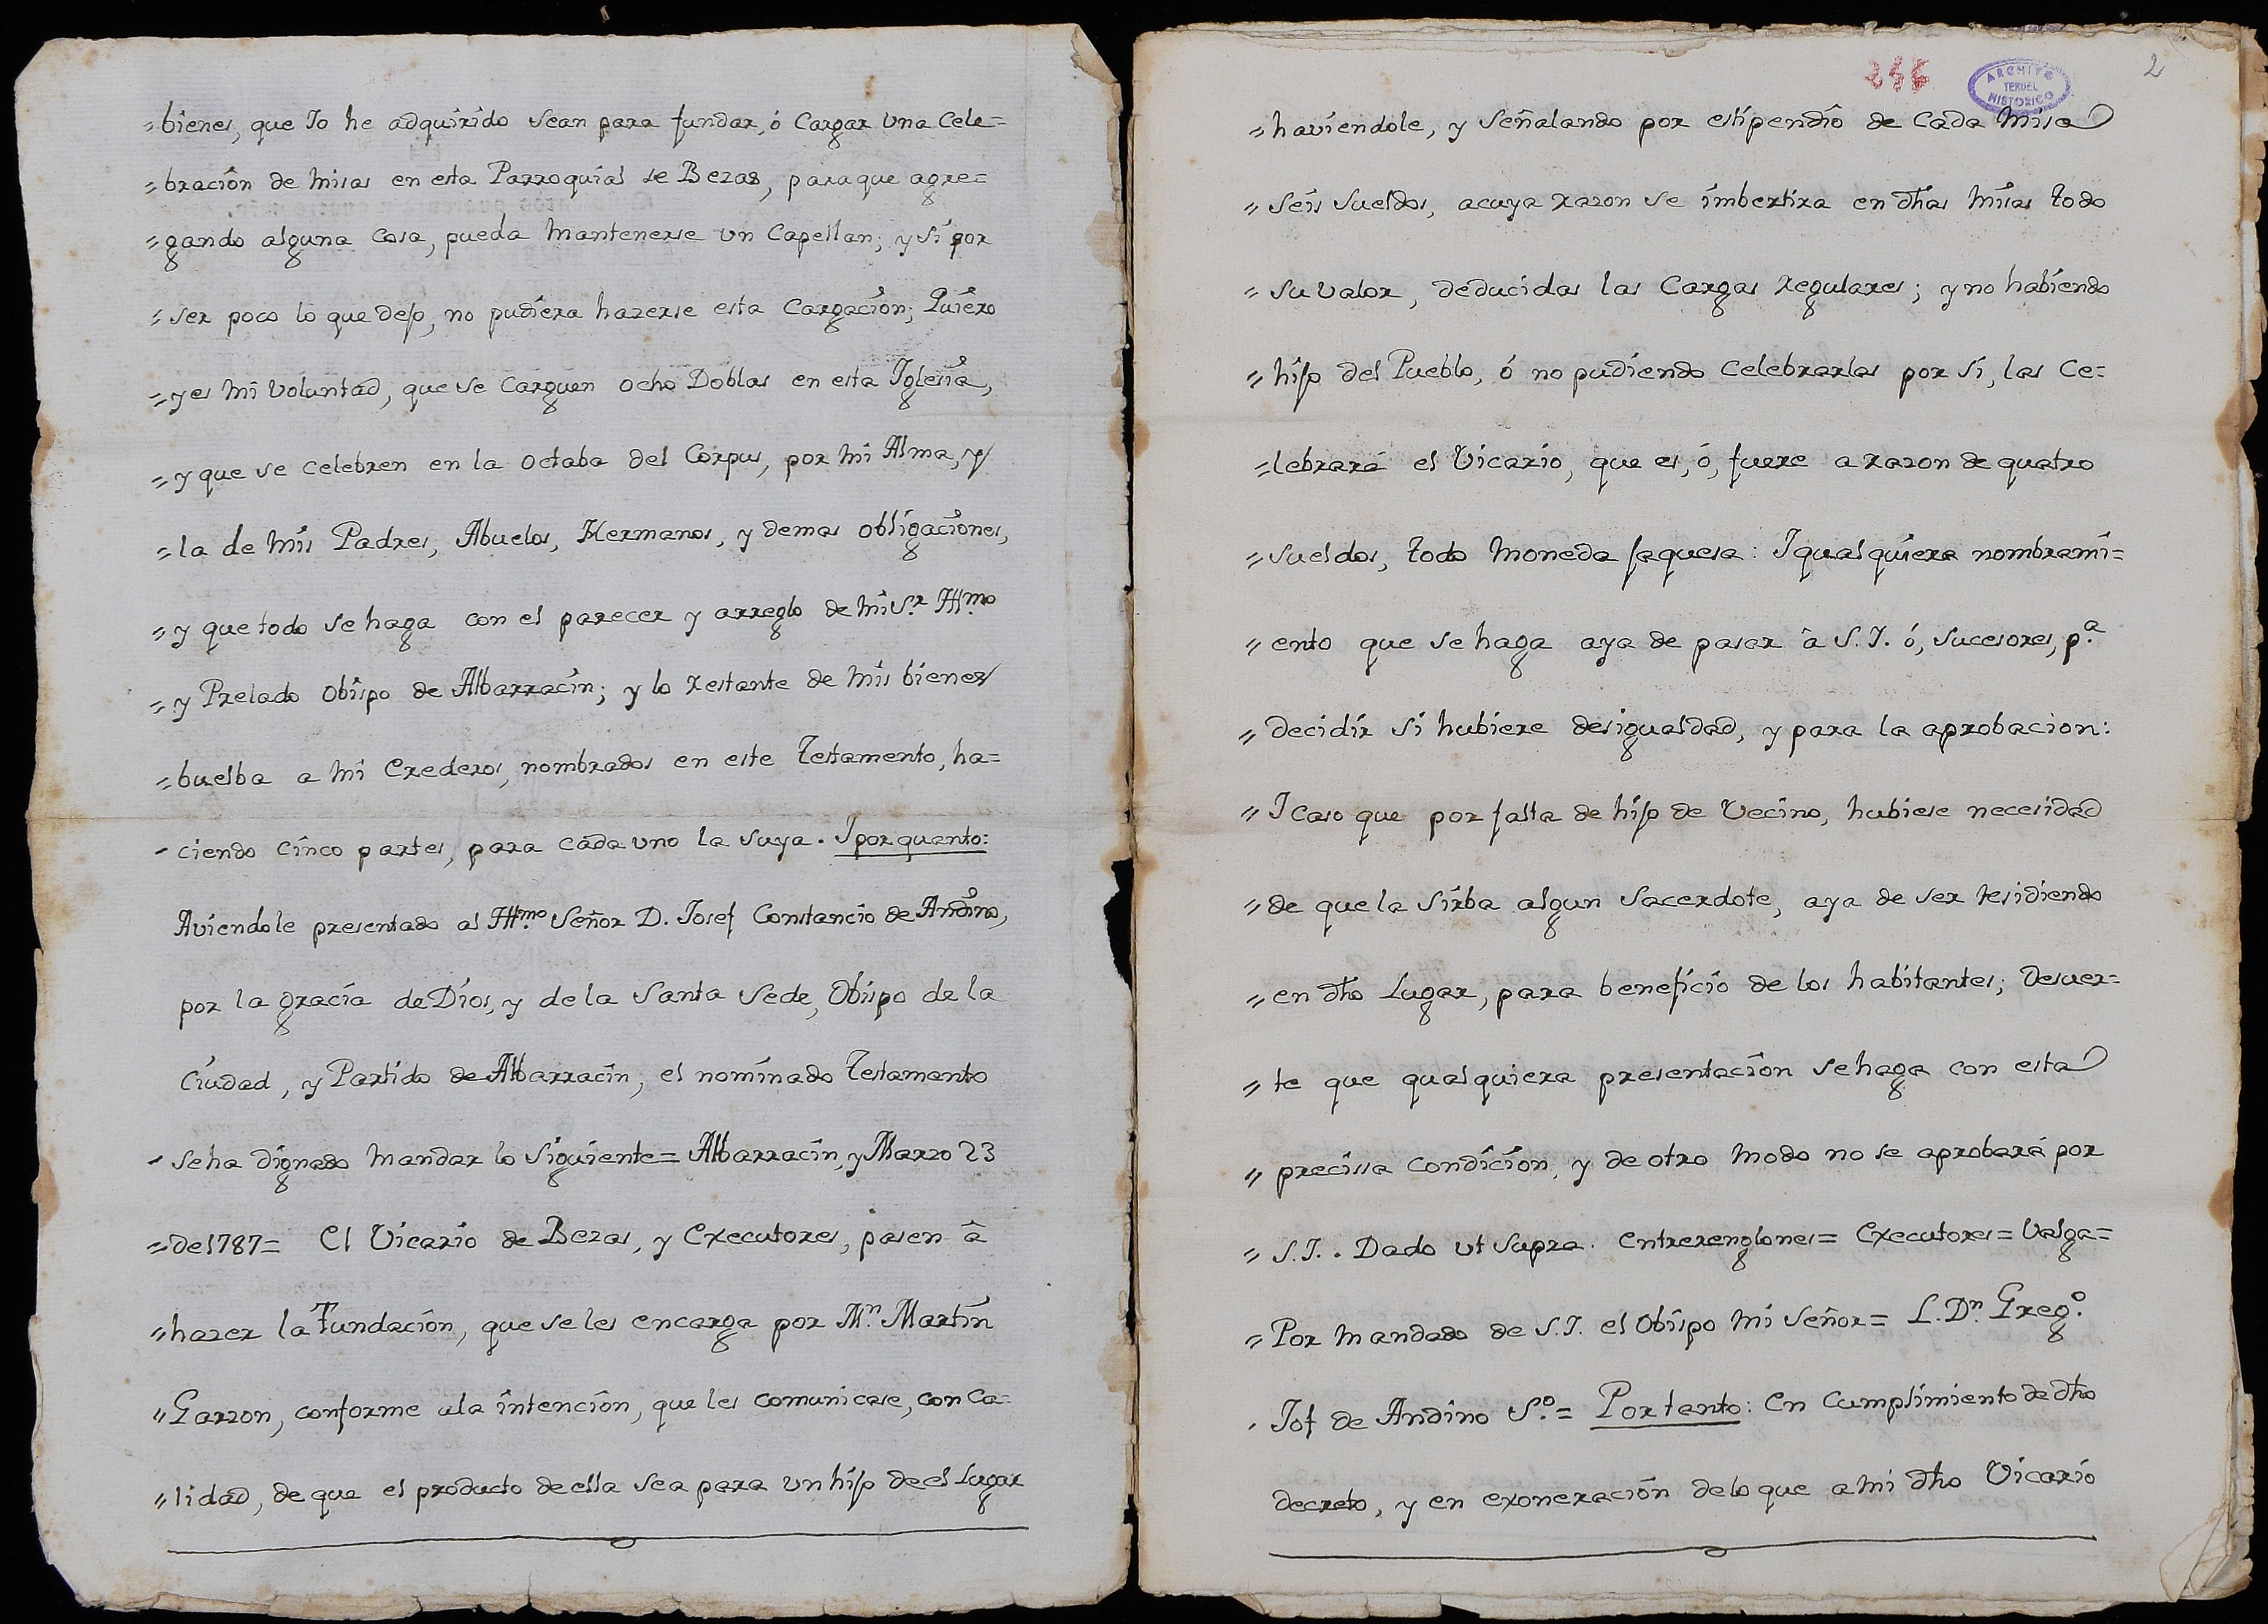 =bienes, que Io he adquirido sean para fundar, ó Cargar una Cele=
=bracion de Misas en esta Parroquial de Bezas, paraque agre=
=gando alguna cosa, pueda Mantenerse un Capellan; y si por
=ser poco lo que dejo, no pudiera hazerse esta Cargacion; Quiero
=y es Mi Voluntad, que se Carguen ocho Doblas en esta Iglesia,
=y que se Celebren en la octaba del Corpus, por Mi Alma, y
=la de Mis Padres, Abuelos, Hermanos, y demas obligaciones,
=y que todo se haga con el parecer y arreglo de Mi S.r Ill.mo
=y Prelado Obispo de Albarracin; y lo restante de Mis bienes
=buelba a Mi Erederos, nombrados en este Testamento, ha=
-ciendo Cinco partes, para cada uno la suya. Iporquanto:
Aviendole presentado al Ill.mo Señor D. Iosef Constancio de Andino,
por la gracia de Dios, y de la Santa Sede, Obispo de la
Ciudad, y Partido de Albarracin, el nominado Testamento
-seha dignado Mandar lo Siguiente= Albarracin, y Marzo 23
=de1787= El Vicario de Bezas, y Executores, pasen â
=hazer la Fundacion, que se les encarga por M.n Martin
=Garzon, conforme ala intencion, que les comunicase, con Ca=
=lidad, de que el producto de ella sea para un hijo de el Lugar
246
ARCHIVO
TERUEL
HISTORICO
2
=haviendole, y Señalando por estipendio de Cada Misa
=Seis Sueldos, acuya razon se imbertira en dhas Misas todo
=su valor, deducidas las Cargas regulares; y no habiendo
=hijo del Pueblo, ó no pudiendo Celebrarlas por si, las Ce=
=lebrará el Vicario, que es, ó, fuere a razon de quatro
=sueldos, todo Moneda jaquesa: Iqualquiera nombrami=
=ento que se haga aya de pasar â S.I. ó, sucesores, p.a
=decidir si hubiere desigualdad, y para la aprobacion:
=I Caso que por falta de hijo de Vecino, hubiese necesidad
=de que la Sirba algun Sacerdote, aya de ser residiendo
=en dho Lugar, para beneficio de los habitantes; Desuer=
=te que qualquiera presentacion sehaga con esta
=precissa Condicion, y de otro Modo no se aprobará por
=S.I.. Dado ut Supra. Entrerenglones= Executores= Valga=
=Por Mandado de S.I. el Obispo Mi Señor= L.D.n Greg.o
-Iof de Andino S.o= Portanto: En Cumplimiento de dho
decreto, y en exoneracion delo que a Mi dho Vicario